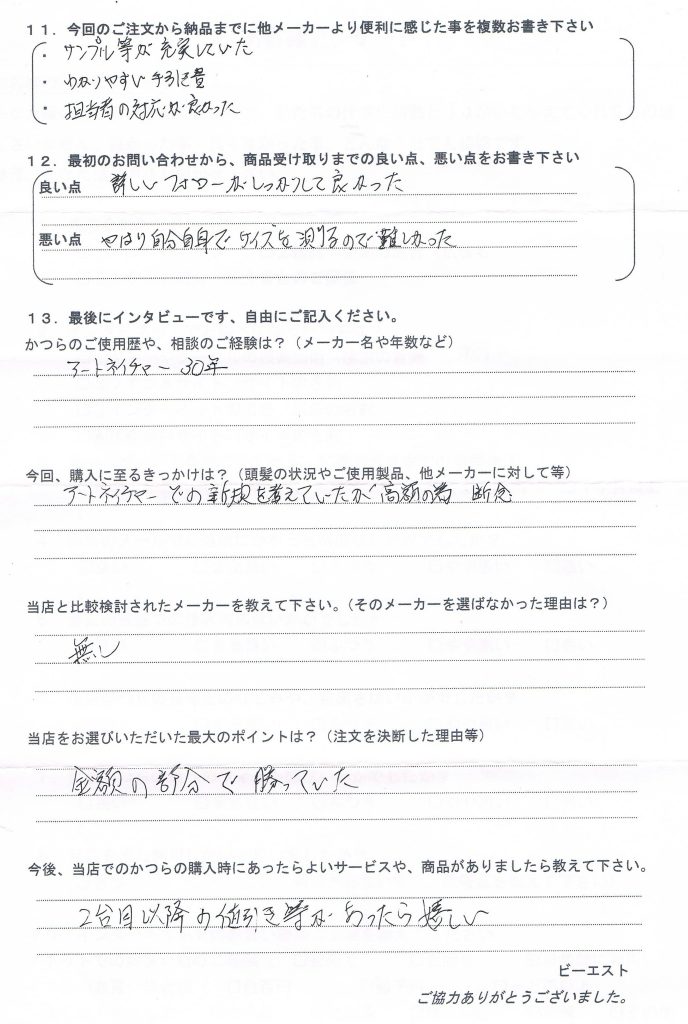 11．今回のご注文から納品までに他メーカーより便利に感じた事を複数お書き下さい
・サンプル等が充実していた
・わかりやすい手引き書
・担当者の対応が良かった
12．最初のお問い合わせから、商品受け取りまでの良い点、悪い点をお書き下さい
良い点 詳しいフォローがしっかりして良かった
悪い点 やはり自分自身でサイズを測るので難しかった
13．最後にインタビューです、自由にご記入ください。
かつらのご使用歴や、相談のご経験は？（メーカー名や年数など）
アートネイチャー 30年
今回、購入に至るきっかけは？（頭髪の状況やご使用製品、他メーカーに対して等）
アートネイチャーでの新規を考えていたが高額の為 断念
当店と比較検討されたメーカーを教えて下さい。（そのメーカーを選ばなかった理由は？）
無し
当店をお選びいただいた最大のポイントは？（注文を決断した理由等）
金額の部分で勝っていた
今後、当店でのかつらの購入時にあったらよいサービスや、商品がありましたら教えて下さい。
2台目以降の値引き等があったら嬉しい
ビーエスト
ご協力ありがとうございました。